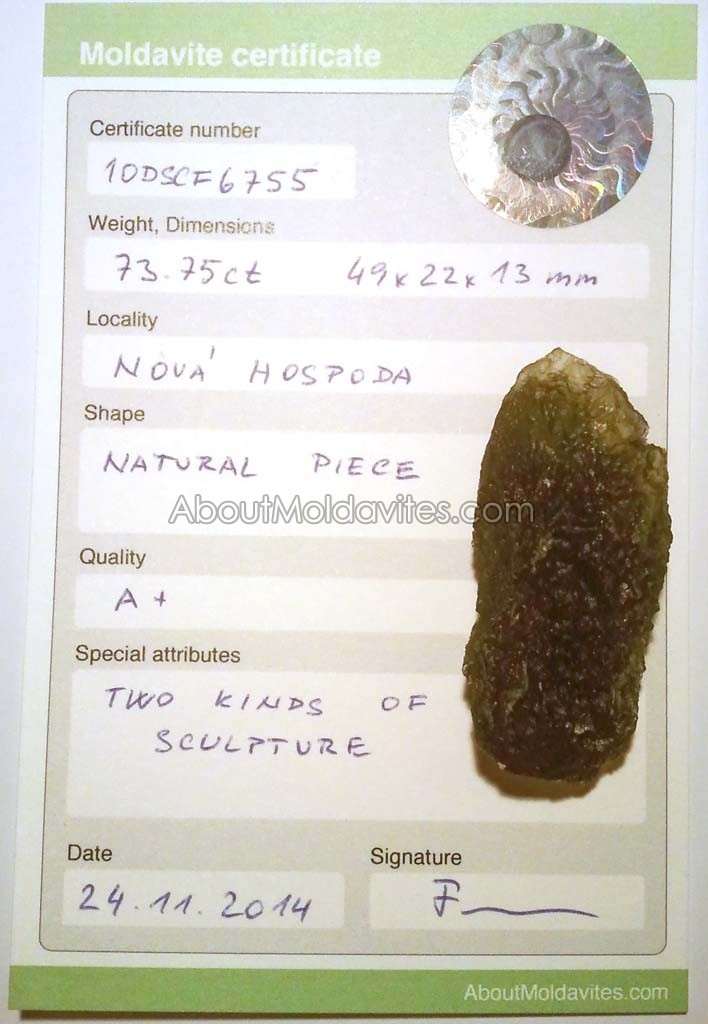 Moldavite certificate
Certificate number
10DSCF6755
Weight, Dimensions
73.75ct 49x22x13 mm
Locality
NOVÁ HOSPODA
Shape
NATURAL PIECE
AboutMoldavites.com
Quality
A+
Special attributes
TWO KINDS OF
SCULPTURE
Date Signature
24.11.2014
AboutMoldavites.com